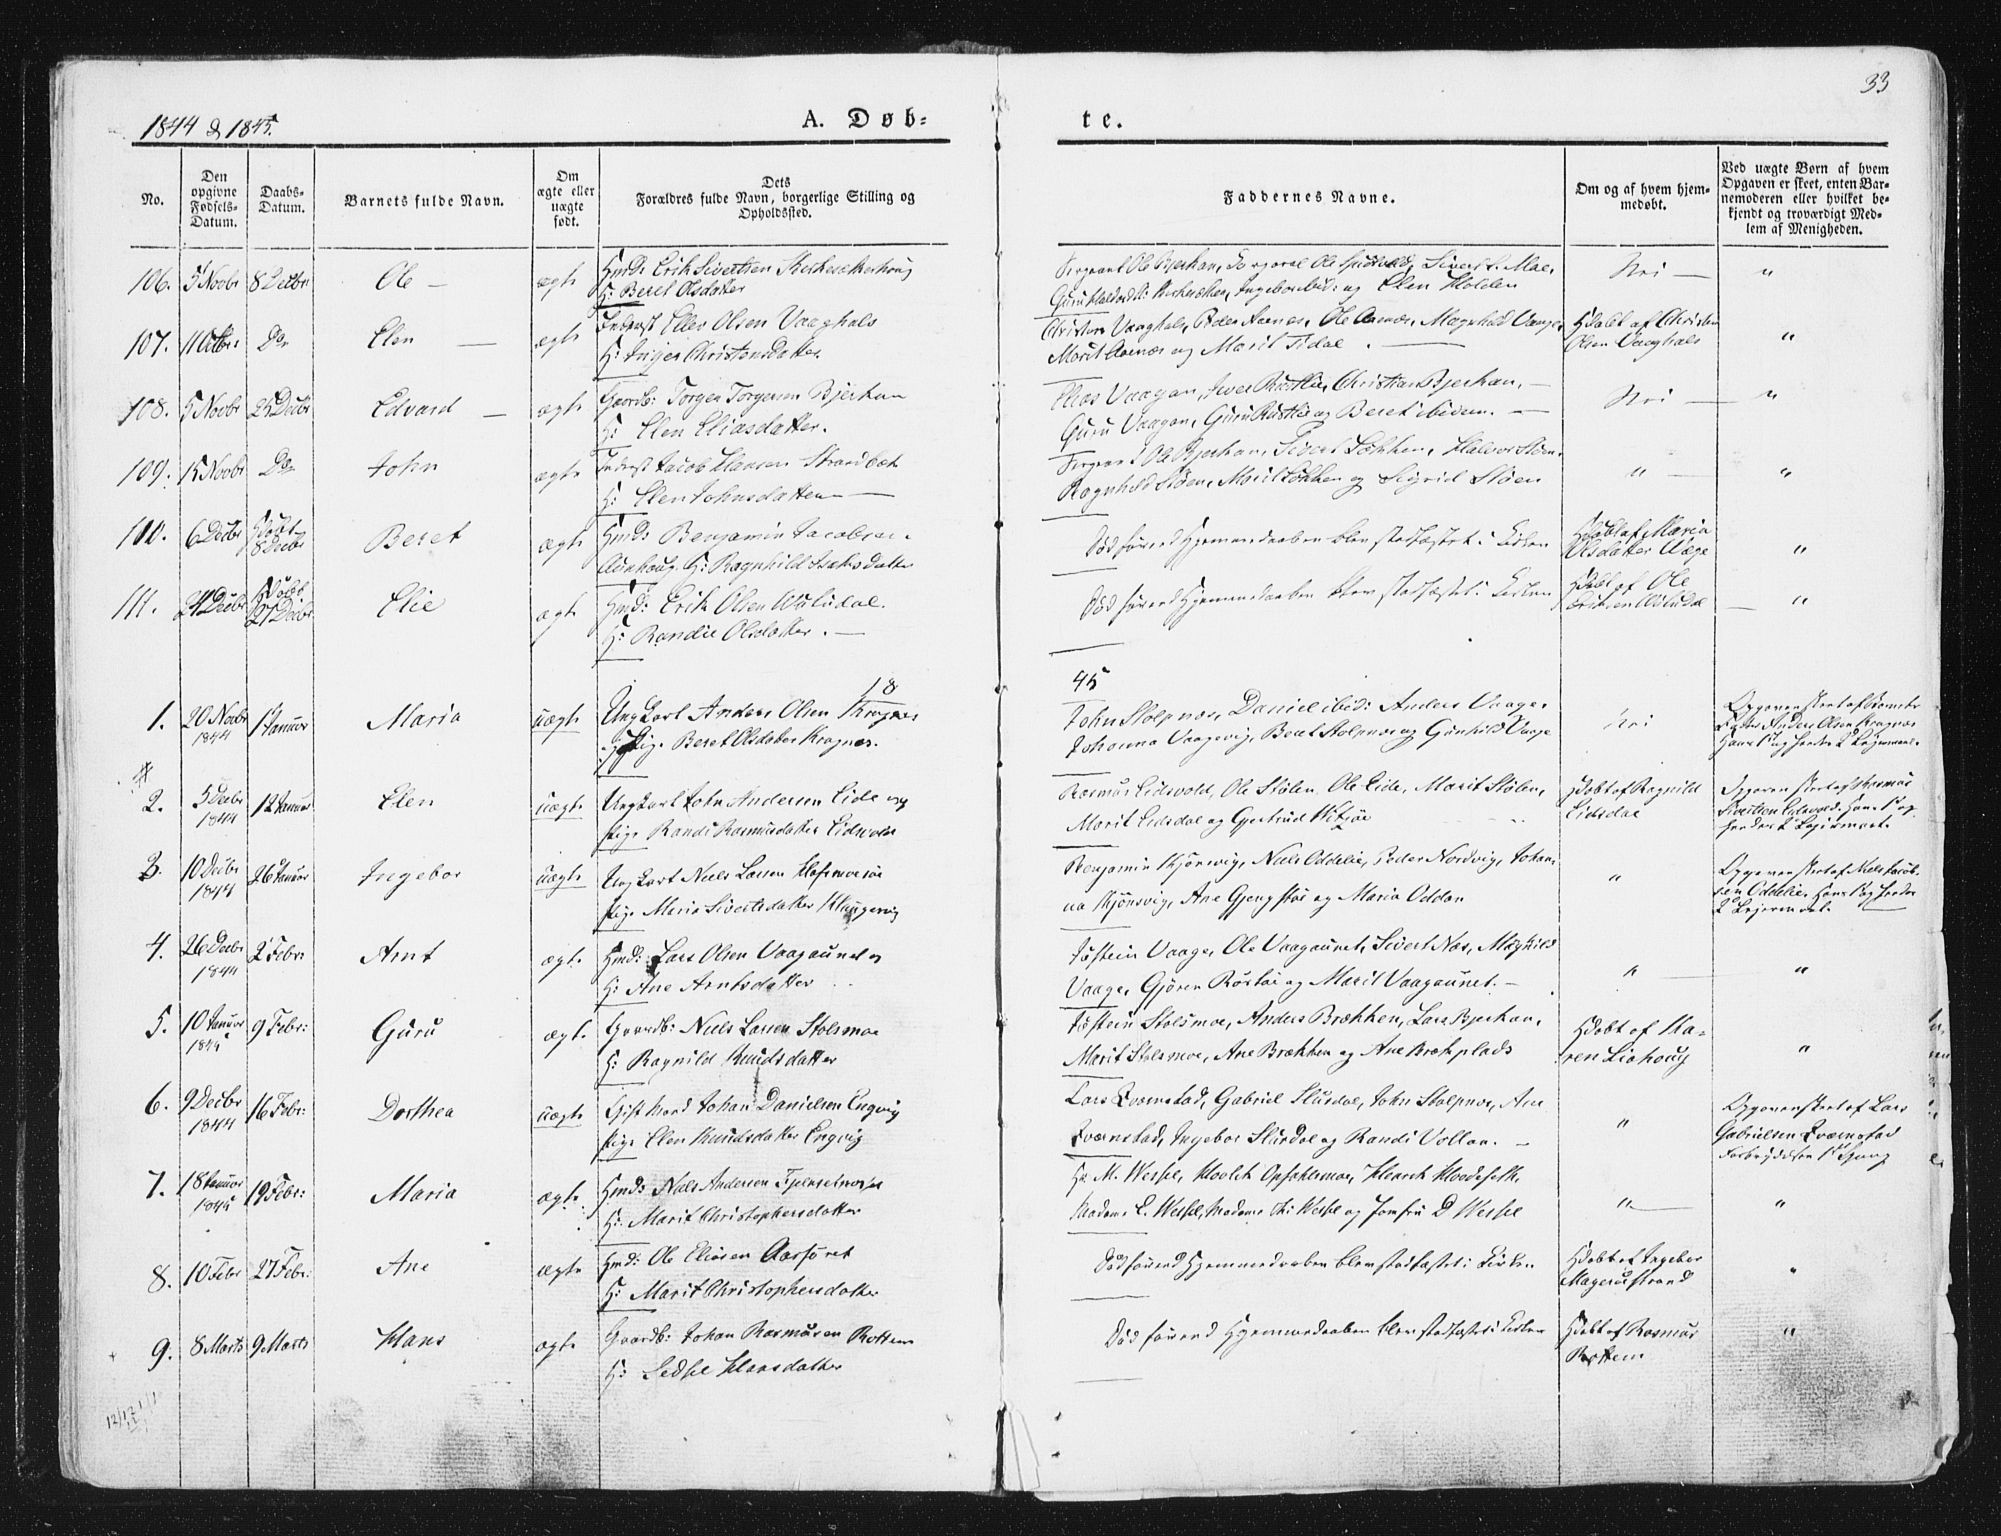 33
1844 & 1845.
A. Døb-
te.
No.
Den opgivne Fødsels-Datum.
Daabs-Datum.
Barnets fulde Navn.
Om ægte eller uægte født.
Dets Forældres fulde Navn, borgerlige Stilling og Opholdssted.
Faddernes Navne.
Om og af hvem hjem-medøbt.
Ved uægte Børn af hvem Opgaven er skeet, enten Bar-nemoderen eller hvilket be-kjendt og troværdigt Med-lem af Menigheden.
106. 5 Novbr 8 Decbr Ole — ægte Hmd: Erik Sivertsen
H: Beret Olsdatter
Sergeant Ole Bjerkan, Corporal Ole
og Elen Holden
Nei — "
107. 11 Octbr: Do Elen — ægte Inderst Eller Olsen Vaaghals
H: Inger Christensdatter
Christen Vaaghals, Peder Aarnes, Ole Aarnes, Magnhild Vaage,
Marit Aarnes og Marit Tidal. —
Hdøbt af Christen
Olsen Vaaghals "
108. 5 Novbr 25 Decbr Edvard — ægte Gaardb: Torger Torgersen Bjerkan
H: Elen Eliasdatter.
Elias Vaagan, Iver Rustlie, Christian Bjerkan, —
Guru Vaagan, Guru Rustlie og Beret ibidem. —
Nei — "
109. 15 Novbr Do John ægte Inderst Jacob Hansen Strandbæk
H: Elen Johnsdatter —
Sergeant Ole Bjerkan, Sivert Løkken, Halvor Støen
Ragnhild Støen, Marit Løkken og Sigrid Støen
" — "
110. 6 Decbr Hdøbt 8 Decbr Beret ægte Hmd: Benjamin Jacobsen
H: Ragnhild Isaksdatter
Død førend Hjemmedaaben blev stadfæstet i Kirken
Hdøbt af Maria
Olsdatter Vaage "
111. 24 Decbr Hdøbt 27 Decbr Elie ægte Hmd: Erik Olsen Wuludal.
H: Randie Olsdatter. —
Død førend Hjemmedaaben blev stadfæstet i Kirken
Hdøbt af Ole
Eriksen Wuludal — "
18
45
1. 20 Novbr 1844 1 Januar Maria uægte Ungkarl Anders Olsen Kragnes
Pige Beret Olsdatter Kragnes.
John Stolpnes, Daniel ibid: Anders Vaage,
Johanna Vaagevig, Beret Stolpnes og Gunhild Vaage
Nei
Opgaven skeet af Barnets
Fader Anders Olsen Kragnes
Hans 1ste og hendes 2det Leiermaal.
2. 5 Decbr 1844 12 Januar Elen uægte Ungkarl John Andersen Eide og
Pige Randi Rasmusdatter Eidsvold
Rasmus Eidsvold, Ole Stølen, Ole Eide, Marit Stølen,
Marit Eidsdal og Gjertrud Vitsøe
Hdøbt af Ragnild
Eidsdal
Opgaven skeet af Rasmus
Sivertsen Eidsvold, Hans 1ste og
hendes 1ste Leiermaal.
3. 10 Decbr 1844 26 Januar Ingebor uægte Ungkarl Niels Larsen
Pige Maria Sivertsdatter Klungervig
Benjamin Kjønsvig, Niels Oddelie, Peder Nordvig, Johan-
na Kjønsvig, Ane Gjengstøe og Maria Oddan
"
Opgaven skeet af Niels Jacob-
sen Oddelie, Hans 1ste og hendes
2det Leiermaal.
4. 26 Decbr 1844 2 Febr: Arnt ægte Hmd: Lars Olsen Vaagaunet
H: Ane Arntsdatter
Jostein Vaage, Ole Vaagaunet, Sivert Næs, Magnhild
Vaage, Gjøren Røstøe og Marit Vaagaunet. —
" — "
5. 10 Januar 1845 9 Febr: Guru ægte Gaardb: Niels Larsen Stolsmoe
H: Ragnild Knudsdatter
Jostein Stolsmoe, Anders Brækken, Lars Bjerkan,
Marit Stolsmoe, Ane Brækken og Ane Brækplads
Hdøbt af Ka-
ren Liahoug "
6. 9 Decbr 1844 16 Febr: Dorthea uægte Gift Mand Johan Danielsen Engvig
Pige Elen Knudsdatter Engvig
Lars Qvernstad, Gabriel Slurdal, John Stolpnes, Ane
Qvernstad, Ingebor Slurdal og Randi Vollan. —
"
Opgaven skeet af Lars
Gabrielsen Qvernstad
Forbrydelse 1ste Gang
7. 18 Januar 1845 19 Febr: Maria ægte Hmd: Niels Andersen
H: Marit Christophersdatter
Hr. M. Wessel,
Madame E. Wessel, Madame Wessel og Jomfru D Wessel
" — "
8. 10 Febr 27 Febr: Ane ægte Hmd: Ole Eliasen Aarsøret
H: Marit Christophersdatter
Død førend Hjemmedaaben blev stadfæstet i Kirken
Hdøbt af Ingebor
Magerustrand "
9. 8 Marts 9 Marts Hans ægte Gaardb: Johan Rasmusen Rottem
H: Sedsel Hansdatter
Død førend Hjemmedaaben blev stadfæstet i Kirken
Hdøbt af Rasmus
Rottem "